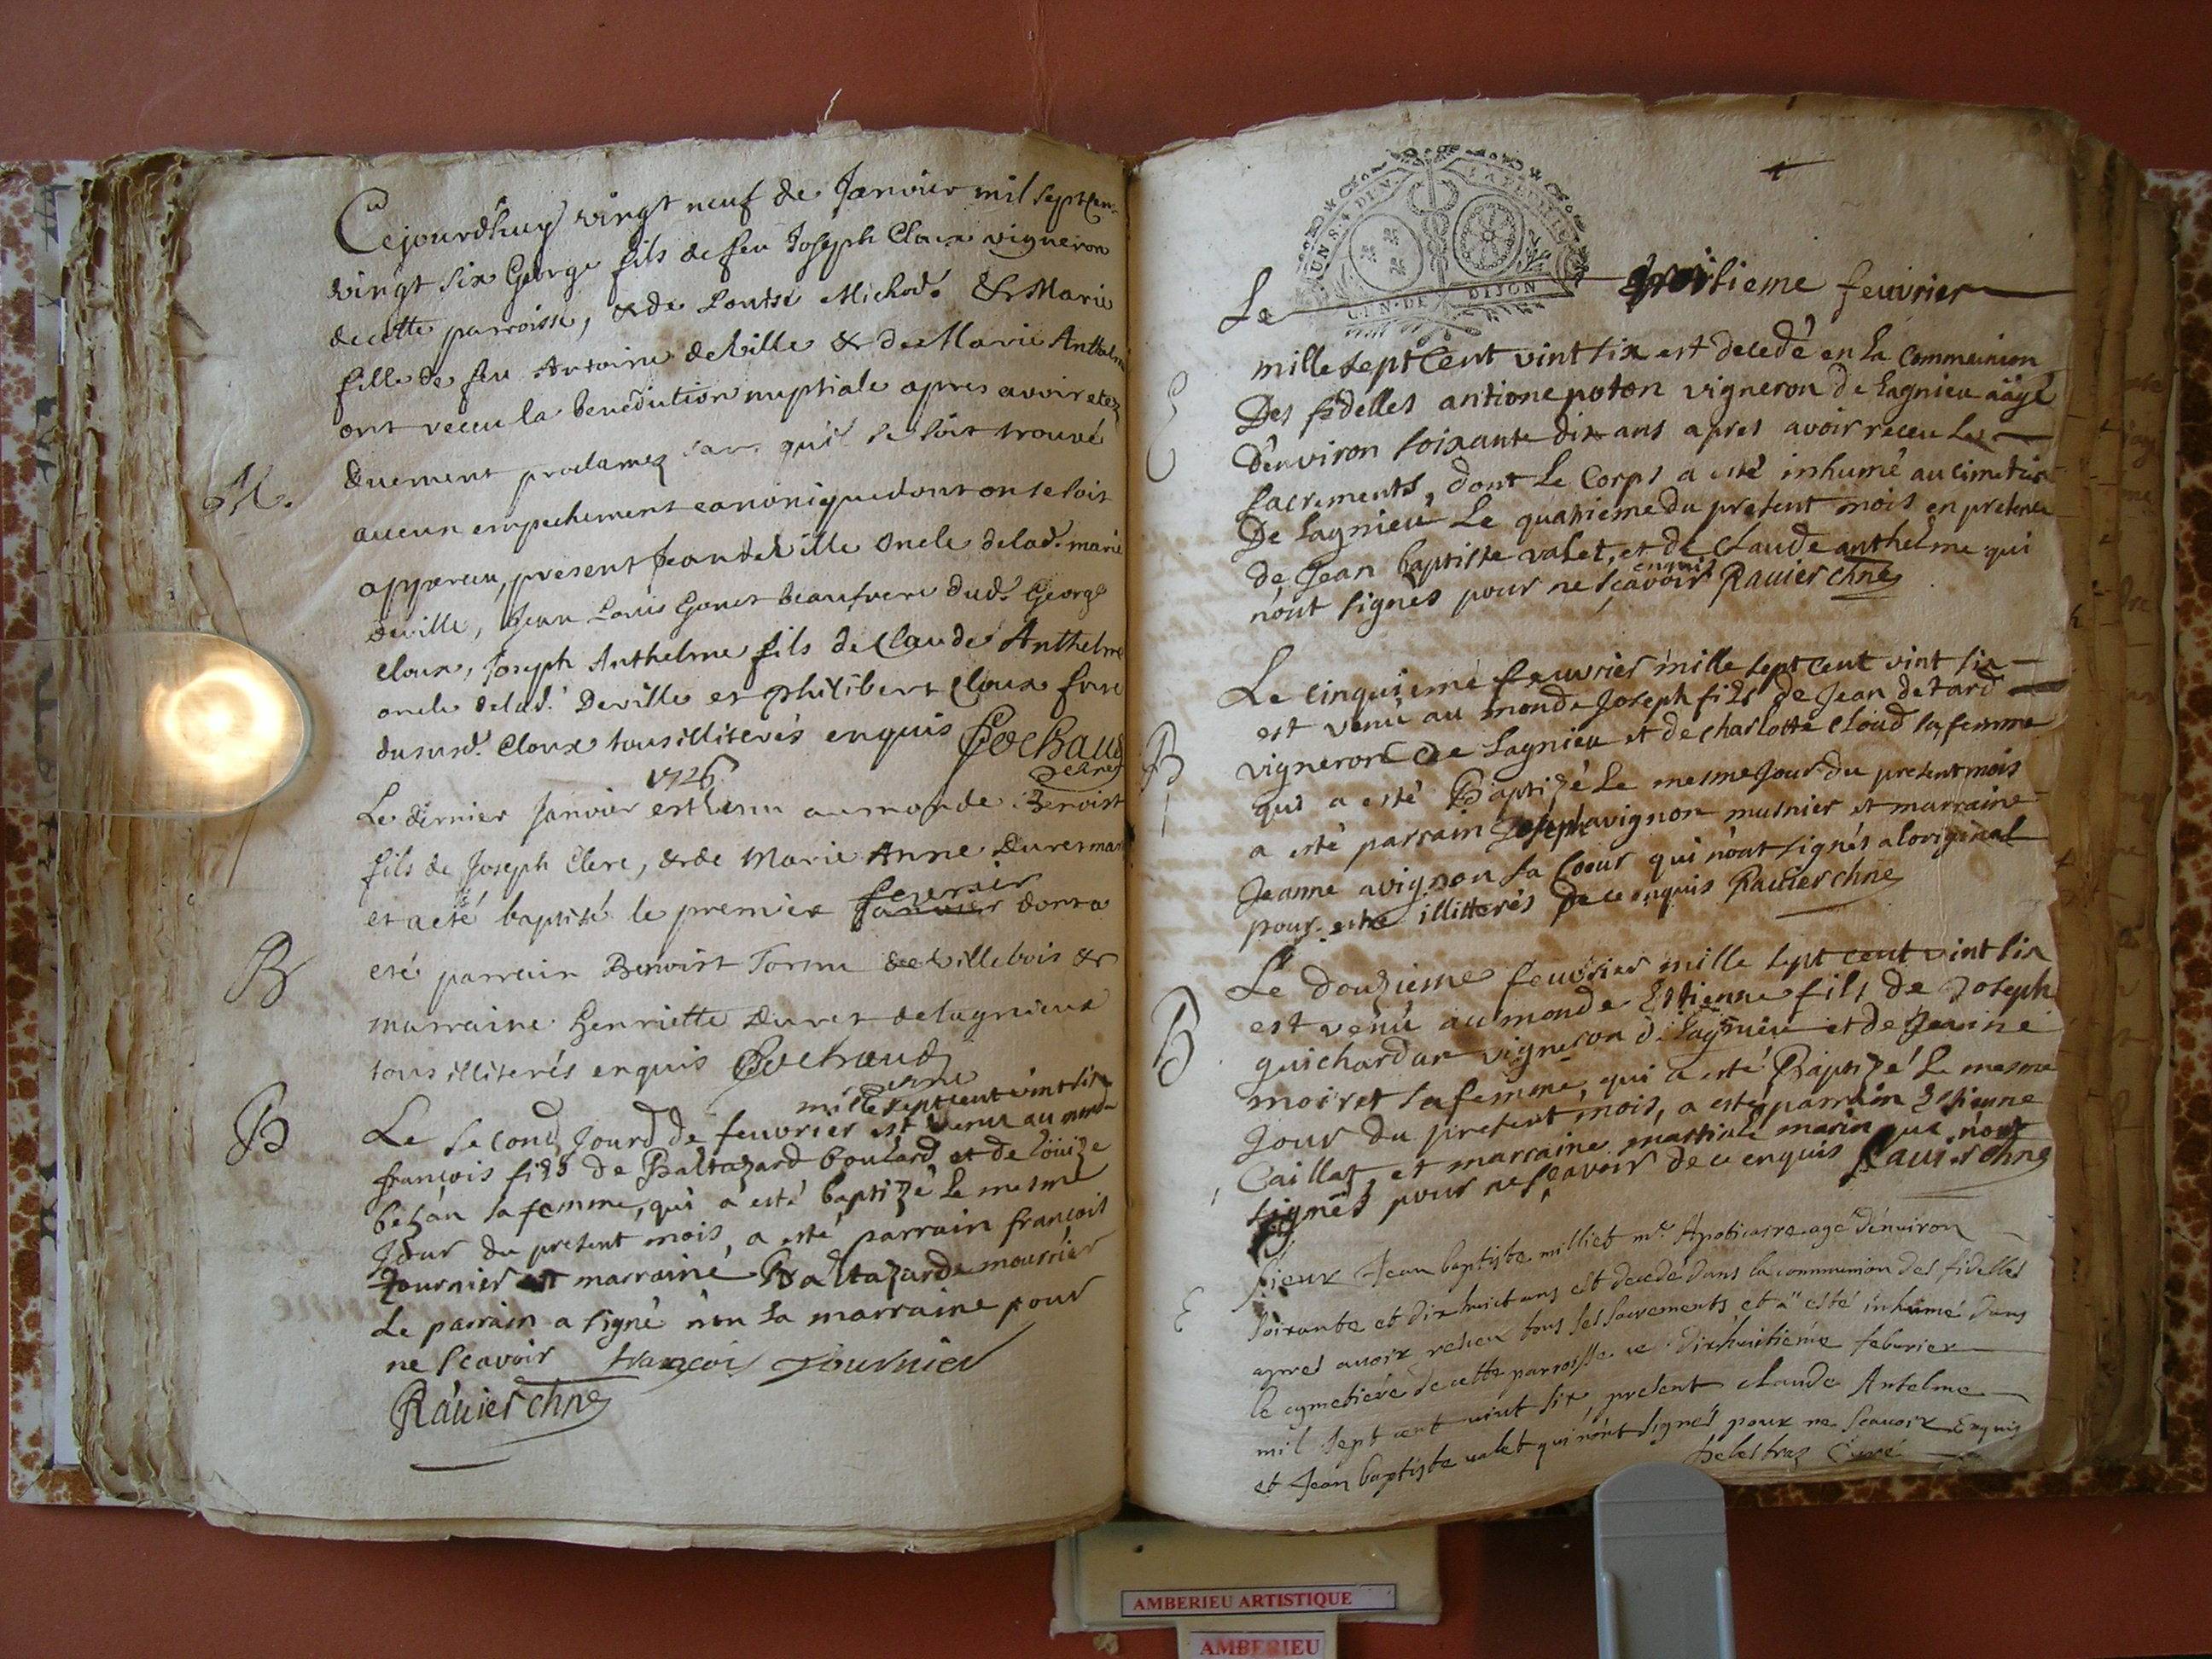 Cejourdhuy vingt neuf de Janvier mil sept cen
vingt six George fils de feu Joseph Cloux vigneron
de cette parroisse, & de Louise Michod. & Marie
fille de feu Antoine deville & de Marie Anthelm
ont receu la benediction nuptiale apres avoir etez
duement proclamez sans quil se soit trouvé
M.
aucun empechement canonique dont on se soit
apperceu, present Jean deville oncle de lad. marie
deville, Jean Louis Gonet beaufrere dud. George
cloux, Joseph Anthelme fils de Claude Anthelme
oncle de lad. Deville et philibert Cloux frere
dususd. Cloux tous illiterés enquis Cochaud
1726
Le dernier Janvier est venu au monde Benoist
fils de Joseph Clere, & de Marie Anne Duret
et a eté baptisé le premier janvier fevrier dont a
B
eté parrain Benoist Tornu de villebois &
marraine henriette Duret de lagnieux
tous illiterés enquis Cochaud
B
mille sept cent vint six
Le second Jourd de feuvrier est venu au monde
françois fils de Baltazard boulard et de loüize
bezan sa femme, qui a esté baptizé le mesme
Jour du present mois, a esté parrain françois
tournier et marraine Baltazarde mounier
Le parrain a signé non la marraine pour
ne scavoir françois Tournier
Rauier chne
GEN. DE DIJON
Le troisieme feuvrier
mille sept Cent vint six est decedé en la Communion
E
Des fidelles antione poton vigneron de Lagnieu aägé
D'environ soixante dix ans apres avoir receu les
sacrements, dont le Corps a esté inhumé au cimetier
De Lagnieu Le quatrieme du present mois en presence
de Jean baptiste valet, et de Claude anthelme qui
enquis
n'ont signes pour ne scavoir Rauier chne
Le cinquieme feuvrier mille sept cent vint six
est venu au monde Joseph fils de Jean detard
B
vigneron de Lagnieu et de charlotte cloud sa femme
qui a esté Baptizé Le mesme Jour du present mois
a esté parrain Joseph avignon musnier et marraine
Jeanne avignon sa soeur qui n'ont signés a loriginal
pour estre illitterés de ce enquis Rauier chne
Le douzieme feuvrier mille sept cent vint six
est venu au monde Estienne fils de Joseph
B
guichardar vigneron de Lagnieu et de Jeanne
moiret sa femme, qui a esté Baptizé Le mesme
Jour du present mois, a esté parrain Estienne
Caillat, et marraine martiale marin qui n'ont
signés pour ne scavoir de ce enquis Rauier chne
Sieur Jean baptiste milliet me. Apoticaire agé d'environ
E
soixante et dix huict ans est decedé dans la communion des fidelles
apres avoir receu tous ses sacrements et a esté inhumé dans
le cymetiere de cette parroisse ce dixhuitieme febvrier
mil sept cent vint six, present claude Antelme
et Jean baptiste valet qui n'ont signés pour ne scavoir Enquis
Delestraz Curé
AMBERIEU ARTISTIQUE
AMBERIEU